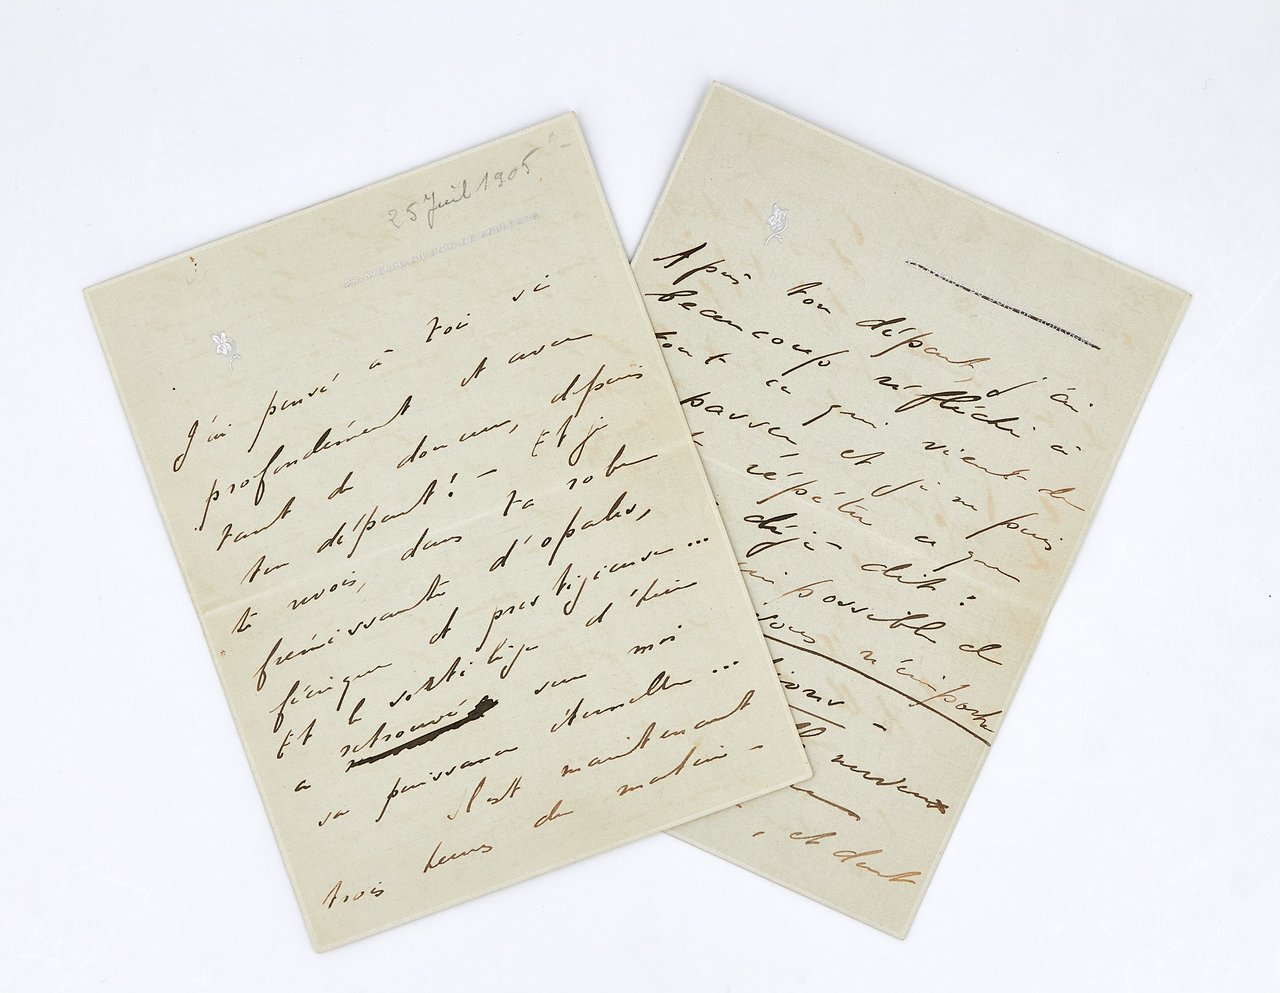 25 Juil 1905
23, AVENUE DU BOIS DE BOULOGNE
J'ai pensé à toi si
profondément et avec
tant de douceur, depuis
ton départ! - Et je
te revois, dans ta robe
frémissante d'opales,
féerique et prestigieuse...
Et le sortilège d'hier
a retrouvé sur moi
sa puissance éternelle...
Il est maintenant
trois heures du matin -
AVENUE DU BOIS DE BOULOGNE
Après ton départ, j'ai
beaucoup réfléchi à
tout ce qui vient de
passer et je ne puis
répéter ce que
déjà dit:
impossible de
sous n'importe
et dont